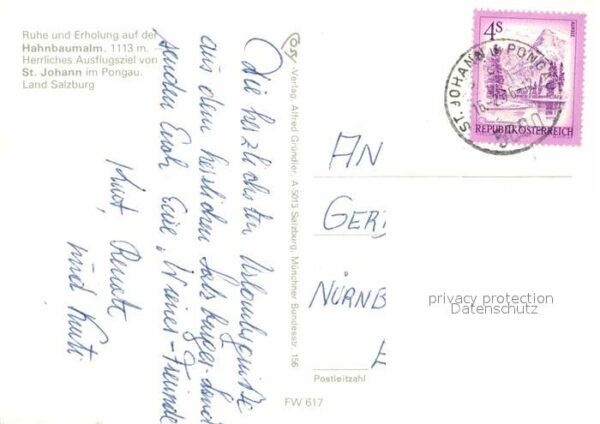 Ruhe und Erholung auf der
Hahnbaumalm. 1113 m. –
Herrliches Ausflugsziel von
St. Johann im Pongau.
Land Salzburg
Die herzlichsten Urlaubsgrüße
aus dem herrlichen Salzburger-Land
senden Euch Eure „Wiener-Freunde
Kurt, Renate
und Kurti
Verlag: Alfred Gründler, A 5013 Salzburg, Münchner Bundesstr. 156
4S
REPUBLIK ÖSTERREICH
ST. JOHANN PONGA
5600
AN
GER
NÜRNB
privacy protection
Datenschutz
Postleitzahl
FW 617